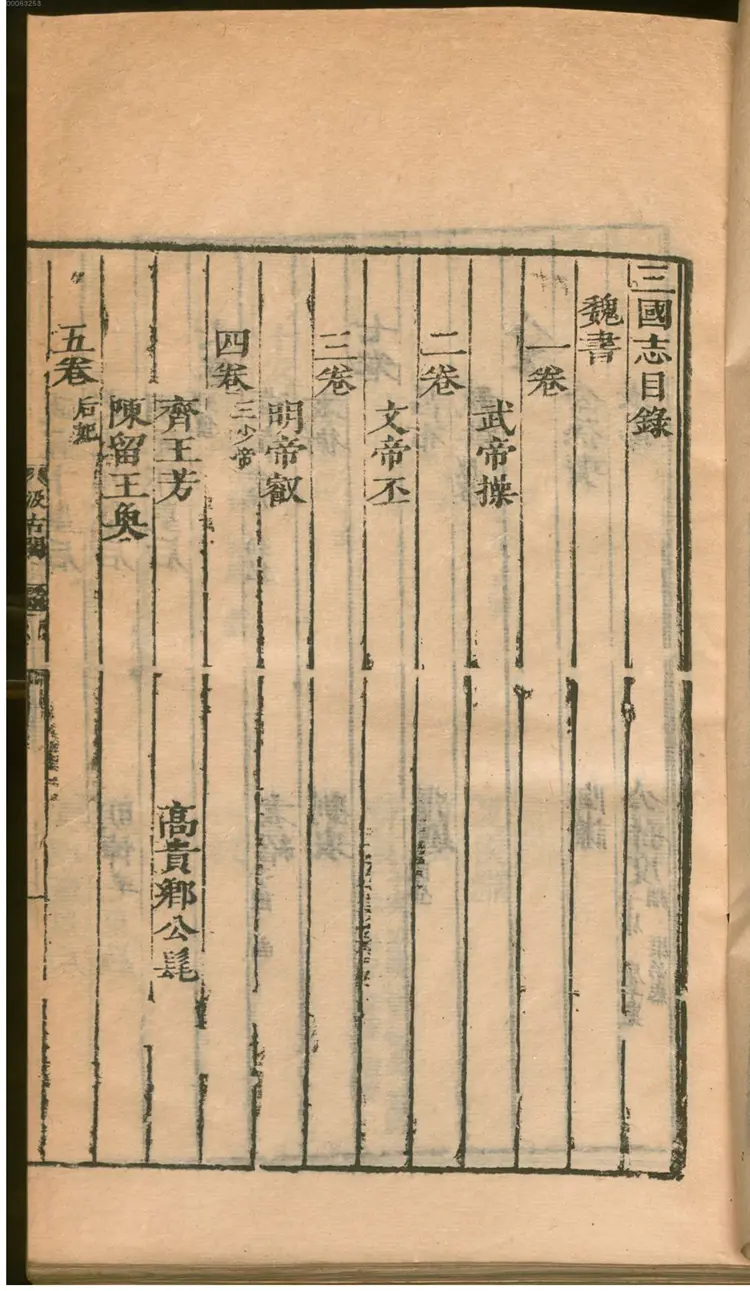 三國志目錄
魏書
一卷
武帝操
二卷
文帝丕
三卷
明帝叡
四卷 三少帝
齊王芳 高貴鄉公髦
陳留王奐
五卷 后妃
汲古閣
00083253